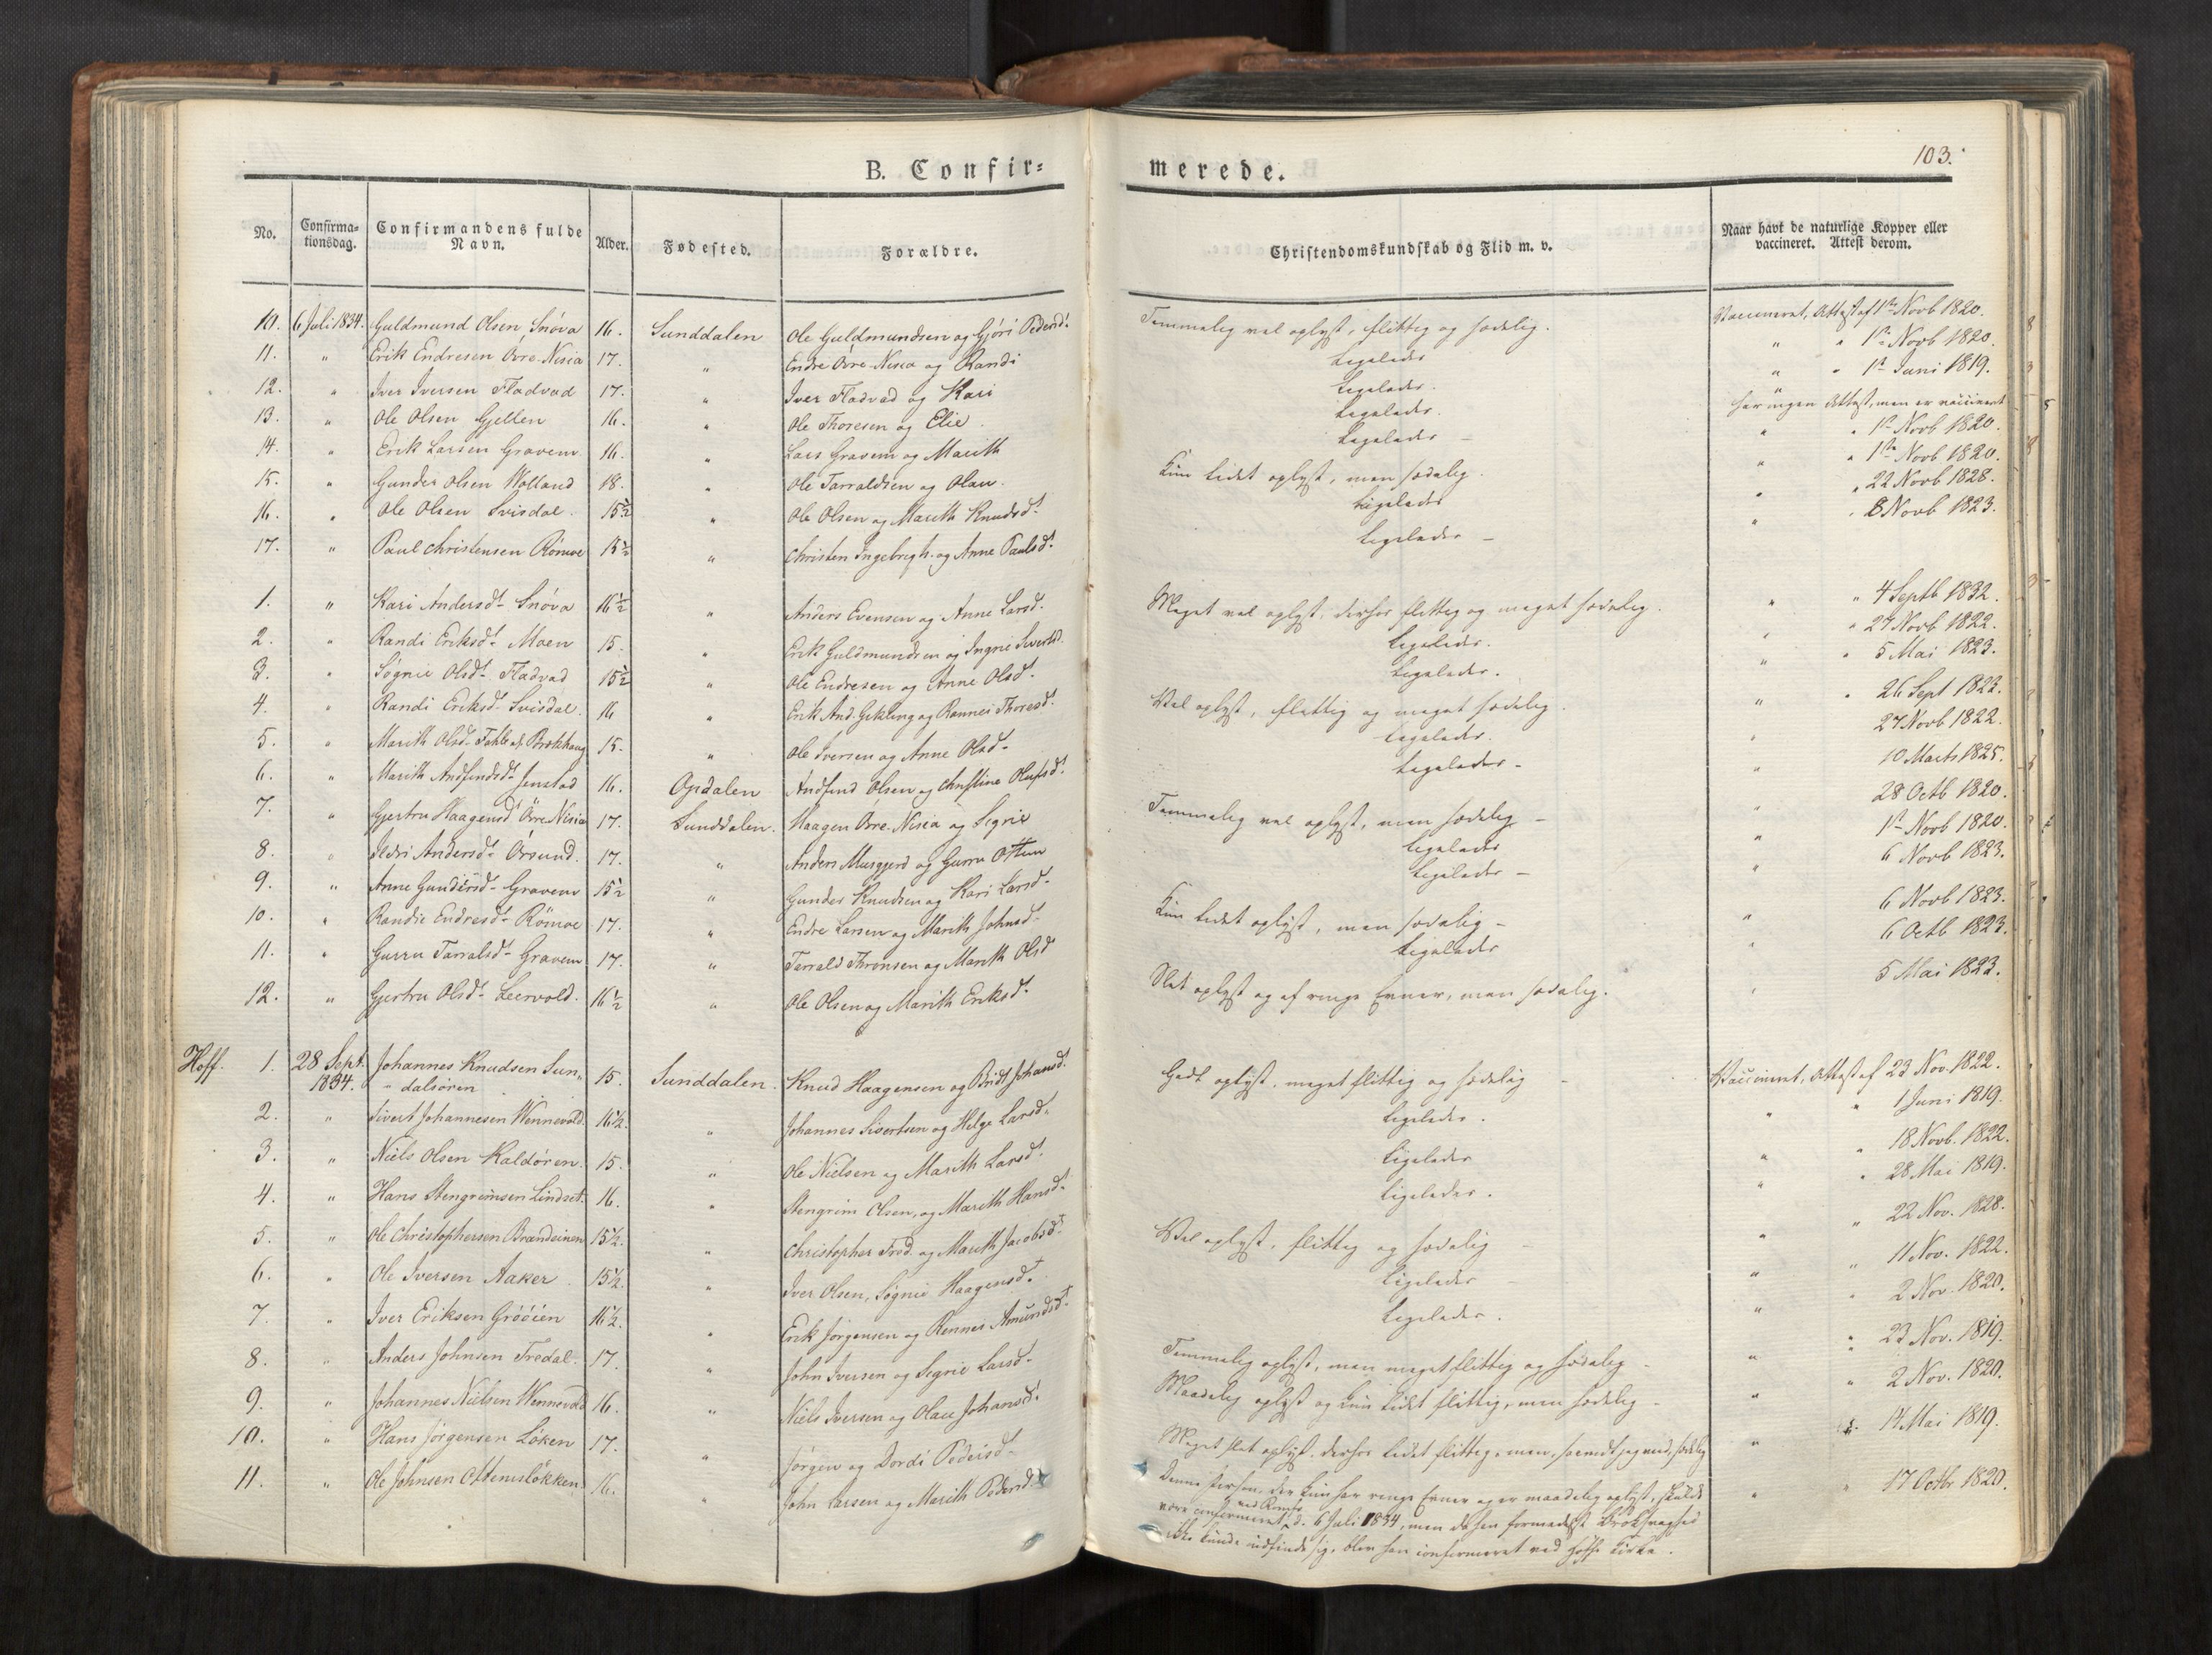 103.
B. Confir= merede.
No. Confirma=tionsdag. Confirmandens fulde Navn. Alder. Fødested. Forældre. Christendomskundskab og Flid m. v. Naar havt de naturlige Kopper eller vaccineret. Attest derom.
10. 6 Juli 1834. Guldmund Olsen Snøva 16. Sunddalen Ole Guldmundsen og Gjøri Pedersdt. Temmelig vel oplyst, flittig og sædelig. Vaccineret, Attest af 1ste Novb 1820.
11. " Erik Endresen Øvre-Nisia 17. " Endre Øvre-Nisia og Randi Ligeledes " " 1ste Novb 1820.
12. " Iver Iversen Fladvad 17. " Iver Fladvad og Kari Ligeledes. " " 1ste Juni 1819.
13. " Ole Olsen Gjellen 16. " Ole Thoresen og Elie. Ligeledes. " har ingen Attest, men er vaccineret
14. " Erik Larsen Gravem 16. " Lars Gravem og Marith Ligeledes – " " 1ste Novb 1820.
15. " Gunder Olsen Wolland 18. " Ole Tarraldsen og Olau. Kun lidet oplyst, men sædelig. " " 1ste Novb 1820.
16. " Ole Olsen Svisdal. 15½ " Ole Olsen og Marith Knudsdt. Ligeledes " " 22 Novb 1828.
17. " Paul Christensen Römoe 15½ " Christen Ingebrigts. og Anne Paulsdt. Ligeledes – " " 8 Novb 1823.
1. " Kari Andersdt. Snøva 16½ " Anders Evensen og Anne Larsd. Meget vel oplyst, derhos flittig og meget sædelig. " " 4 Septb 1832.
2. " Randi Eriksdt. Moen 15. " Erik Guldmundsen og Ingrie Sivertsd. Ligeledes. " " 27 Novb 1822.
3. " Søgnie Olsdt. Fladvad 15½ " Ole Endresen og Anne Olsdt. Ligeledes. " " 5 Mai 1823.
4. " Randi Eriksdt. Svisdal. 16 " Erik And. Gikling og Rannei Thoresdt. Vel oplyst, flittig og meget sædelig. " " 26 Sept 1823.
5. " Marith Olsdt. Fahle 15. " Ole Iversen og Anne Olsd. Ligeledes. " 27 Novb 1822.
6. " Marith Andfindsdt. Jenstad 16. Opdalen Andfind Olsen og Christine Olufsdt. Ligeledes – " 10 Marts 1825.
7. " Gjertru Haagensdt. Øvre Nisia 17. Sunddalen. Haagen Øvre-Nisia og Segrie Temmelig vel oplyst, men sædelig – " 28 Octb 1820.
8. " Ildri Andersdt. Ørsund. 17. " Anders Musgjerd og Gurru Ottem Ligeledes " 1ste Novb 1820.
9. " Anne Gundersdt. Gravem 15½ " Gunder Knudsen og Kari Larsd. Ligeledes – " 6 Novb 1823.
10. " Randie Endresdt. Römoe 17. " Endre Larsen og Marith Johnsd. Kun lidet oplyst, men sædelig – " 6 Novb 1823.
11. " Gurru Tarralsdt. Gravem 17. " Tarrald Thronsen og Marith Olsd Ligeledes " 6 Octb 1823.
12. " Gjertru Olsdt. Leervold. 16½ " Ole Olsen og Marith Eriksdt. Slet oplyst og af ringe Evner, men sædelig. " 5 Mai 1823.
Hoff. 1. 28 Sept. 1834. Johannes Knudsen Sun„ 15. Sunddalen. Knud Haagensen og Bridt Johansdt. Godt oplyst, meget flittig og sædelig – Vaccineret, Attest af 23 Nov. 1822.
" dalsören
2. " Sivert Johannesen Wennevold. 16½. " Johannes Sivertsen og Helge Larsd. Ligeledes. " " 1 Juni 1819.
3. " Niels Olsen Kaldören. 15. " Ole Nielsen og Marith Larsdt. Ligeledes " " 18 Novb. 1822.
4. " Hans Stengrimsen Lindset. 16. " Stengrim Olsen, og Marith Hansd. Ligeledes. " " 28 Mai 1819.
5. " Ole Christophersen Brandeinen 15½. " Christopher Tred. og Marith Jacobsdt. Vel oplyst, flittig og sædelig – " " 22 Nov. 1828.
6. " Ole Iversen Aaker. 15½. " Iver Olsen, Søgnie Haagensdt. Ligeledes – " " 11 Nov. 1822.
7. " Iver Eriksen Gröóien 16½. " Erik Jörgensen og Rennei Amundsdt. Ligeledes. " " 2 Nov. 1820.
8. " Anders Johnsen Tredal. 17. " John Iversen og Segrie Larsd. Temmelig oplyst, men meget flittig og sædelig – " " 23 Nov. 1819.
9. " Johannes Nielsen Wennevold 16. " Niels Iversen og Olau Johansdt. Maadelig oplyst og kun lidet flittig, men sædelig – " " 2 Nov. 1820.
10. " Hans Jörgensen Löken 17. " Jörgen og Dordi Pedersd. Meget slet oplyst, derhos lidet flittig, men, saavidt jeg veed, sædelig " 14 Mai 1819.
11. " Ole Johnsen Ottemslökken 16. " John Larsen og Marith Pedersd. Denne Person, der kun har ringe Evner og er maadelig oplyst, skulde " " 17 Octbr 1820.
være confirmeret ved Romfo d. 6 Juli 1834, men da han formedelst
ikke kunde indfinde sig, blev han confirmeret ved Hoffs Kirke.